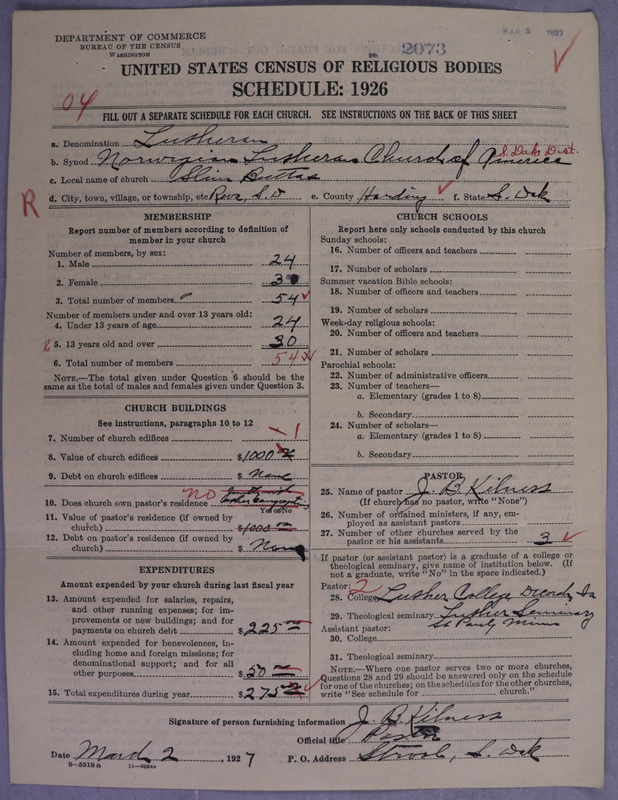 DEPARTMENT OF COMMERCE
BUREAU OF THE CENSUS
WASHINGTON
MAR 5 1927
2073
UNITED STATES CENSUS OF RELIGIOUS BODIES
SCHEDULE: 1926
04
FILL OUT A SEPARATE SCHEDULE FOR EACH CHURCH. SEE INSTRUCTIONS ON THE BACK OF THIS SHEET
a. Denomination Lutheran
b. Synod Norwegian Lutheran Church of America S. Dak. Dist.
c. Local name of church Slim Buttes
d. City, town, village, or township, etc. Reva, S.D e. County Harding f. State S. Dak
R
MEMBERSHIP
Report number of members according to definition of
member in your church
Number of members, by sex:
1. Male 24
2. Female 30
3. Total number of members 54
Number of members under and over 13 years old:
4. Under 13 years of age 24
5. 13 years old and over 30
6. Total number of members 54
NOTE.—The total given under Question 6 should be the
same as the total of males and females given under Question 3.
CHURCH BUILDINGS
See instructions, paragraphs 10 to 12
7. Number of church edifices 1
8. Value of church edifices $1000
9. Debt on church edifices $ None
10. Does church own pastor's residence no
Yes or No
11. Value of pastor's residence (if owned by
church) $1000
12. Debt on pastor's residence (if owned by
church) $ None
EXPENDITURES
Amount expended by your church during last fiscal year
13. Amount expended for salaries, repairs,
and other running expenses; for im-
provements or new buildings; and for
payments on church debt $ 225
14. Amount expended for benevolences, in-
cluding home and foreign missions; for
denominational support; and for all
other purposes $ 50
15. Total expenditures during year $ 275
CHURCH SCHOOLS
Report here only schools conducted by this church
Sunday schools:
16. Number of officers and teachers
17. Number of scholars
Summer vacation Bible schools:
18. Number of officers and teachers
19. Number of scholars
Week-day religious schools:
20. Number of officers and teachers
21. Number of scholars
Parochial schools:
22. Number of administrative officers
23. Number of teachers—
a. Elementary (grades 1 to 8)
b. Secondary
24. Number of scholars—
a. Elementary (grades 1 to 8)
b. Secondary
PASTOR
25. Name of pastor J. B Kilness
(If church has no pastor, write "None")
26. Number of ordained ministers, if any, em-
ployed as assistant pastors
27. Number of other churches served by the
pastor or his assistants 3
If pastor (or assistant pastor) is a graduate of a college or
theological seminary, give name of institution below. (If
not a graduate, write "No" in the space indicated.)
Pastor: 2
28. College Luther College Decorah, Ia
29. Theological seminary Luther Seminary
St Paul, Minn
Assistant pastor:
30. College
31. Theological seminary
NOTE.—Where one pastor serves two or more churches,
Questions 28 and 29 should be answered only on the schedule
for one of the churches; on the schedules for the other churches,
write "See schedule for church."
Signature of person furnishing information J. B Kilness
Official title Pastor
Date March 2, 1927 P. O. Address Strool, S. Dak
8—5518a 11—9084a